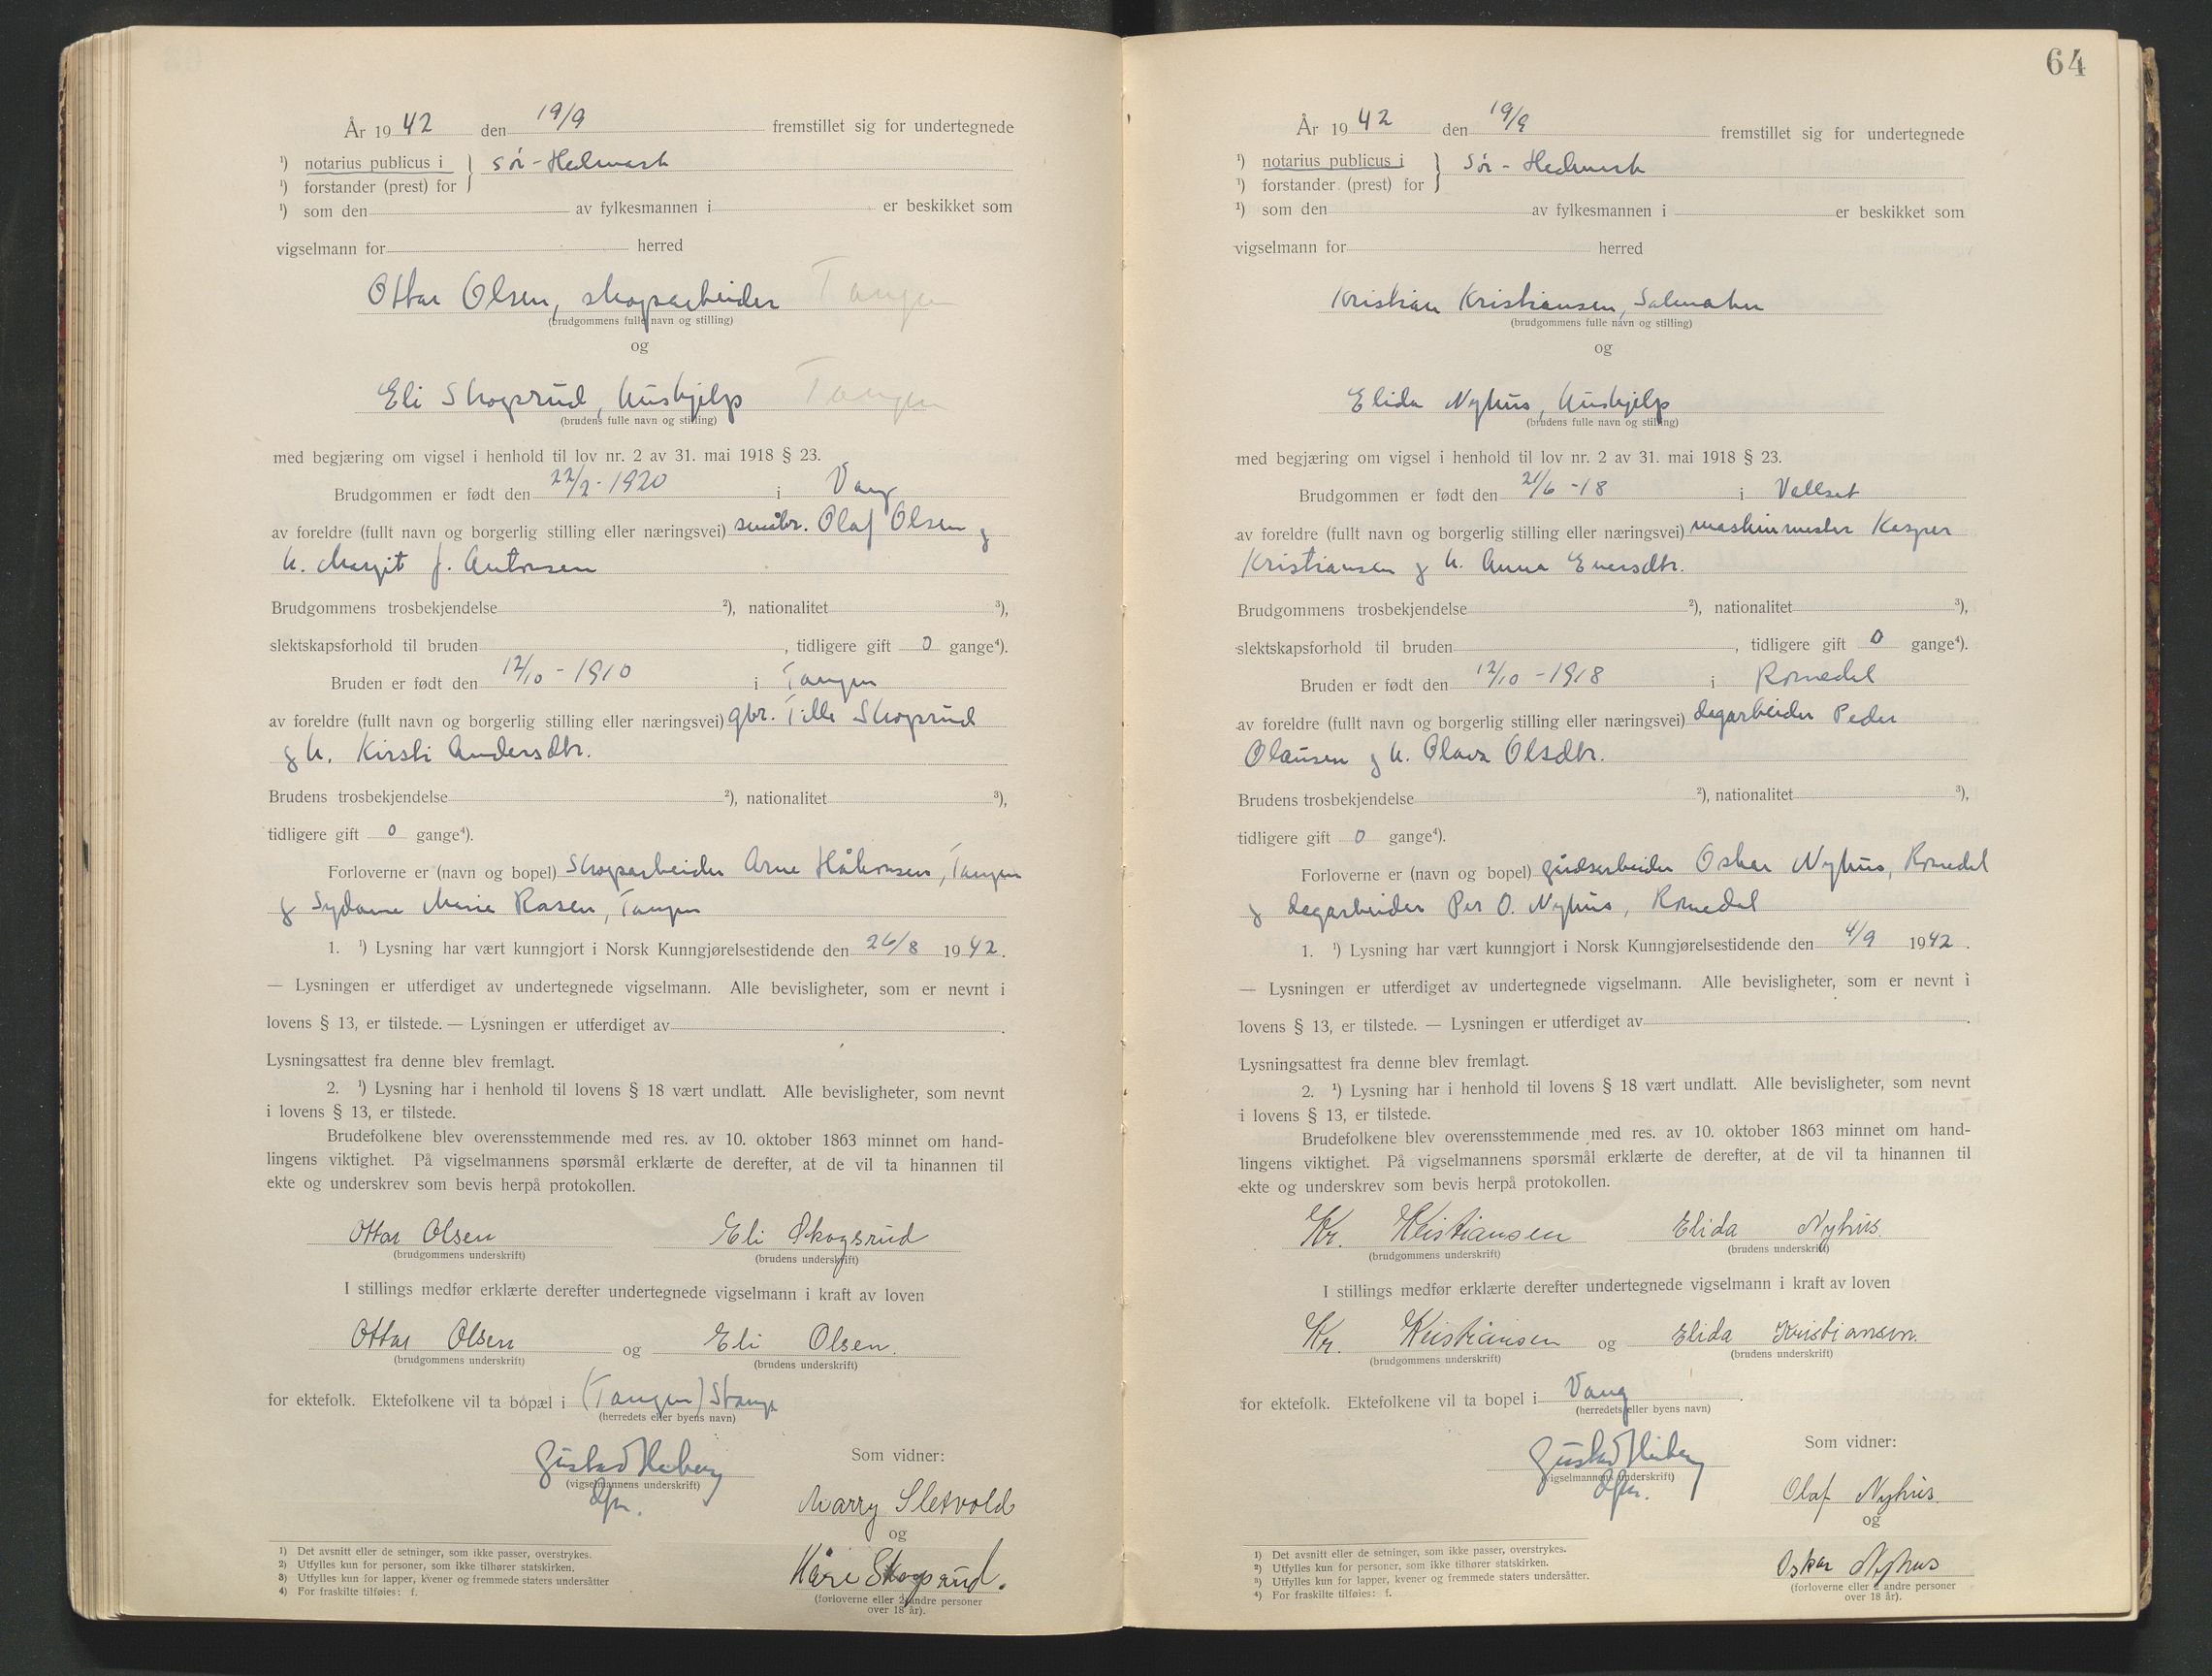 År 19 42 den 19/9 fremstillet sig for undertegnede
¹) notarius publicus i } Sør-Hedmark
¹) forstander (prest) for
¹) som den av fylkesmannen i er beskikket som
vigselmann for herred
Ottar Olsen, skogsarbeider Tangen
(brudgommens fulle navn og stilling)
og
Eli Skogsrud, hushjelp Tangen
(brudens fulle navn og stilling)
med begjæring om vigsel i henhold til lov nr. 2 av 31. mai 1918 § 23.
Brudgommen er født den 22/2-1920 i Vang
av foreldre (fullt navn og borgerlig stilling eller næringsvei) småbr. Olaf Olsen og
h. Margit f. Antonsen
Brudgommens trosbekjendelse ²), nationalitet ³),
slektskapsforhold til bruden , tidligere gift 0 gange⁴).
Bruden er født den 12/10-1910 i Tangen
av foreldre (fullt navn og borgerlig stilling eller næringsvei) gbr. Tille Skogsrud
og h. Kirsti Andersdtr.
Brudens trosbekjendelse ²), nationalitet ³),
tidligere gift 0 gange⁴).
Forloverne er (navn og bopel) Skogsarbeider Arne Håkonsen, Tangen
og Marie Rasen, Tangen
1. ¹) Lysning har vært kunngjort i Norsk Kunngjørelsestidende den 26/8 1942.
— Lysningen er utferdiget av undertegnede vigselmann. Alle bevisligheter, som er nevnt i
lovens § 13, er tilstede. — Lysningen er utferdiget av .
Lysningsattest fra denne blev fremlagt.
2. ¹) Lysning har i henhold til lovens § 18 vært undlatt. Alle bevisligheter, som nevnt
i lovens § 13, er tilstede.
Brudefolkene blev overensstemmende med res. av 10. oktober 1863 minnet om hand-
lingens viktighet. På vigselmannens spørsmål erklærte de derefter, at de vil ta hinannen til
ekte og underskrev som bevis herpå protokollen.
Ottar Olsen Eli Skogsrud
(brudgommens underskrift) (brudens underskrift)
I stillings medfør erklærte derefter undertegnede vigselmann i kraft av loven
Ottar Olsen og Eli Olsen.
(brudgommens underskrift) (brudens underskrift)
for ektefolk. Ektefolkene vil ta bopæl i (Tangen) Stange
(herredets eller byens navn)
Gustav Heiberg
(vigselmannens underskrift)
Som vidner:
Marry Sletvold
og
Kåre Skogsrud.
(forloverne eller 2 andre personer
over 18 år).
¹) Det avsnitt eller de setninger, som ikke passer, overstrykes.
²) Utfylles kun for personer, som ikke tilhører statskirken.
³) Utfylles kun for lapper, kvener og fremmede staters undersåtter
⁴) For fraskilte tilføies: f.
64
År 19 42 den 19/9 fremstillet sig for undertegnede
¹) notarius publicus i } Sør-Hedmark
¹) forstander (prest) for
¹) som den av fylkesmannen i er beskikket som
vigselmann for herred
Kristian Kristiansen, Salmaker
(brudgommens fulle navn og stilling)
og
Elida Nyhus, hushjelp
(brudens fulle navn og stilling)
med begjæring om vigsel i henhold til lov nr. 2 av 31. mai 1918 § 23.
Brudgommen er født den 21/6-18 i Vallset
av foreldre (fullt navn og borgerlig stilling eller næringsvei) maskinmester Kasper
Kristiansen og h. Anna Evensdtr.
Brudgommens trosbekjendelse ²), nationalitet ³),
slektskapsforhold til bruden , tidligere gift 0 gange⁴).
Bruden er født den 12/10-1918 i Romedal
av foreldre (fullt navn og borgerlig stilling eller næringsvei) dagarbeider Peder
Olausen og h. Olava Olsdtr.
Brudens trosbekjendelse ²), nationalitet ³),
tidligere gift 0 gange⁴).
Forloverne er (navn og bopel) gårdsarbeider Oskar Nyhus, Romedal
og dagarbeider Per O. Nyhus, Romedal
1. ¹) Lysning har vært kunngjort i Norsk Kunngjørelsestidende den 4/9 1942.
— Lysningen er utferdiget av undertegnede vigselmann. Alle bevisligheter, som er nevnt i
lovens § 13, er tilstede. — Lysningen er utferdiget av .
Lysningsattest fra denne blev fremlagt.
2. ¹) Lysning har i henhold til lovens § 18 vært undlatt. Alle bevisligheter, som nevnt
i lovens § 13, er tilstede.
Brudefolkene blev overensstemmende med res. av 10. oktober 1863 minnet om hand-
lingens viktighet. På vigselmannens spørsmål erklærte de derefter, at de vil ta hinannen til
ekte og underskrev som bevis herpå protokollen.
Kr. Kristiansen Elida Nyhus.
(brudgommens underskrift) (brudens underskrift)
I stillings medfør erklærte derefter undertegnede vigselmann i kraft av loven
Kr. Kristiansen og Elida Kristiansen.
(brudgommens underskrift) (brudens underskrift)
for ektefolk. Ektefolkene vil ta bopel i Vang .
(herredets eller byens navn)
Gustav Heiberg
(vigselmannens underskrift)
Som vidner:
Olaf Nyhus.
og
Oskar Nyhus
(forloverne eller 2 andre personer
over 18 år).
¹) Det avsnitt eller de setninger, som ikke passer, overstrykes.
²) Utfylles kun for personer, som ikke tilhører statskirken.
³) Utfylles kun for lapper, kvener og fremmede staters undersåtter.
⁴) For fraskilte tilføies: f.